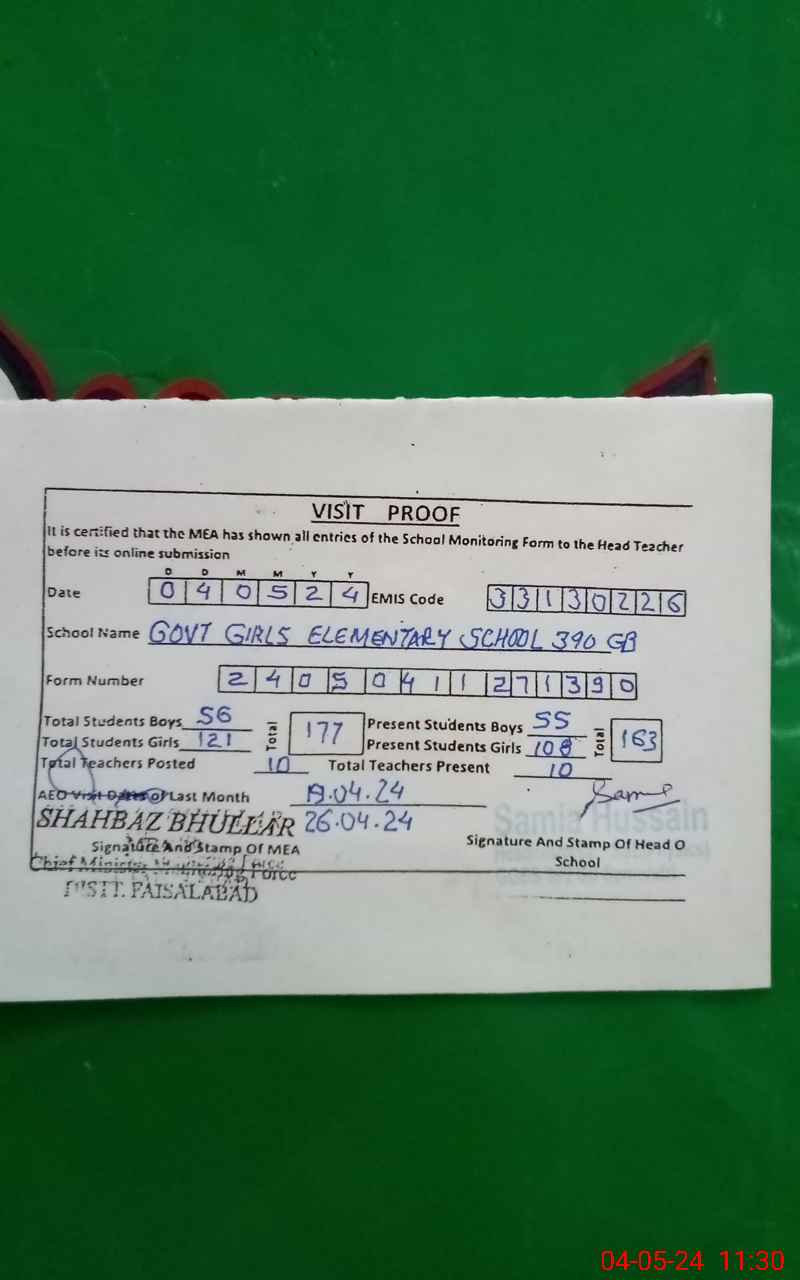 VISIT PROOF
It is certified that the MEA has shown all entries of the School Monitoring Form to the Head Teacher
before its online submission
D D M M Y Y
Date 0 4 0 5 2 4 EMIS Code 3 3 1 3 0 2 2 6
School Name GOVT GIRLS ELEMENTARY SCHOOL 390 GB
Form Number 2 4 0 5 0 4 1 1 2 7 1 3 9 0
Total Students Boys 56 Total 177 Present Students Boys 55 Total 163
Total Students Girls 121 Present Students Girls 108
Total Teachers Posted 10 Total Teachers Present 10
AEO Visit Dates of Last Month 19.04.24
SHAHBAZ BHULLAR 26.04.24
Samia Hussain
Signature And Stamp Of MEA Signature And Stamp Of Head O
School
Force
DISTT. FAISALABAD
04-05-24 11:30